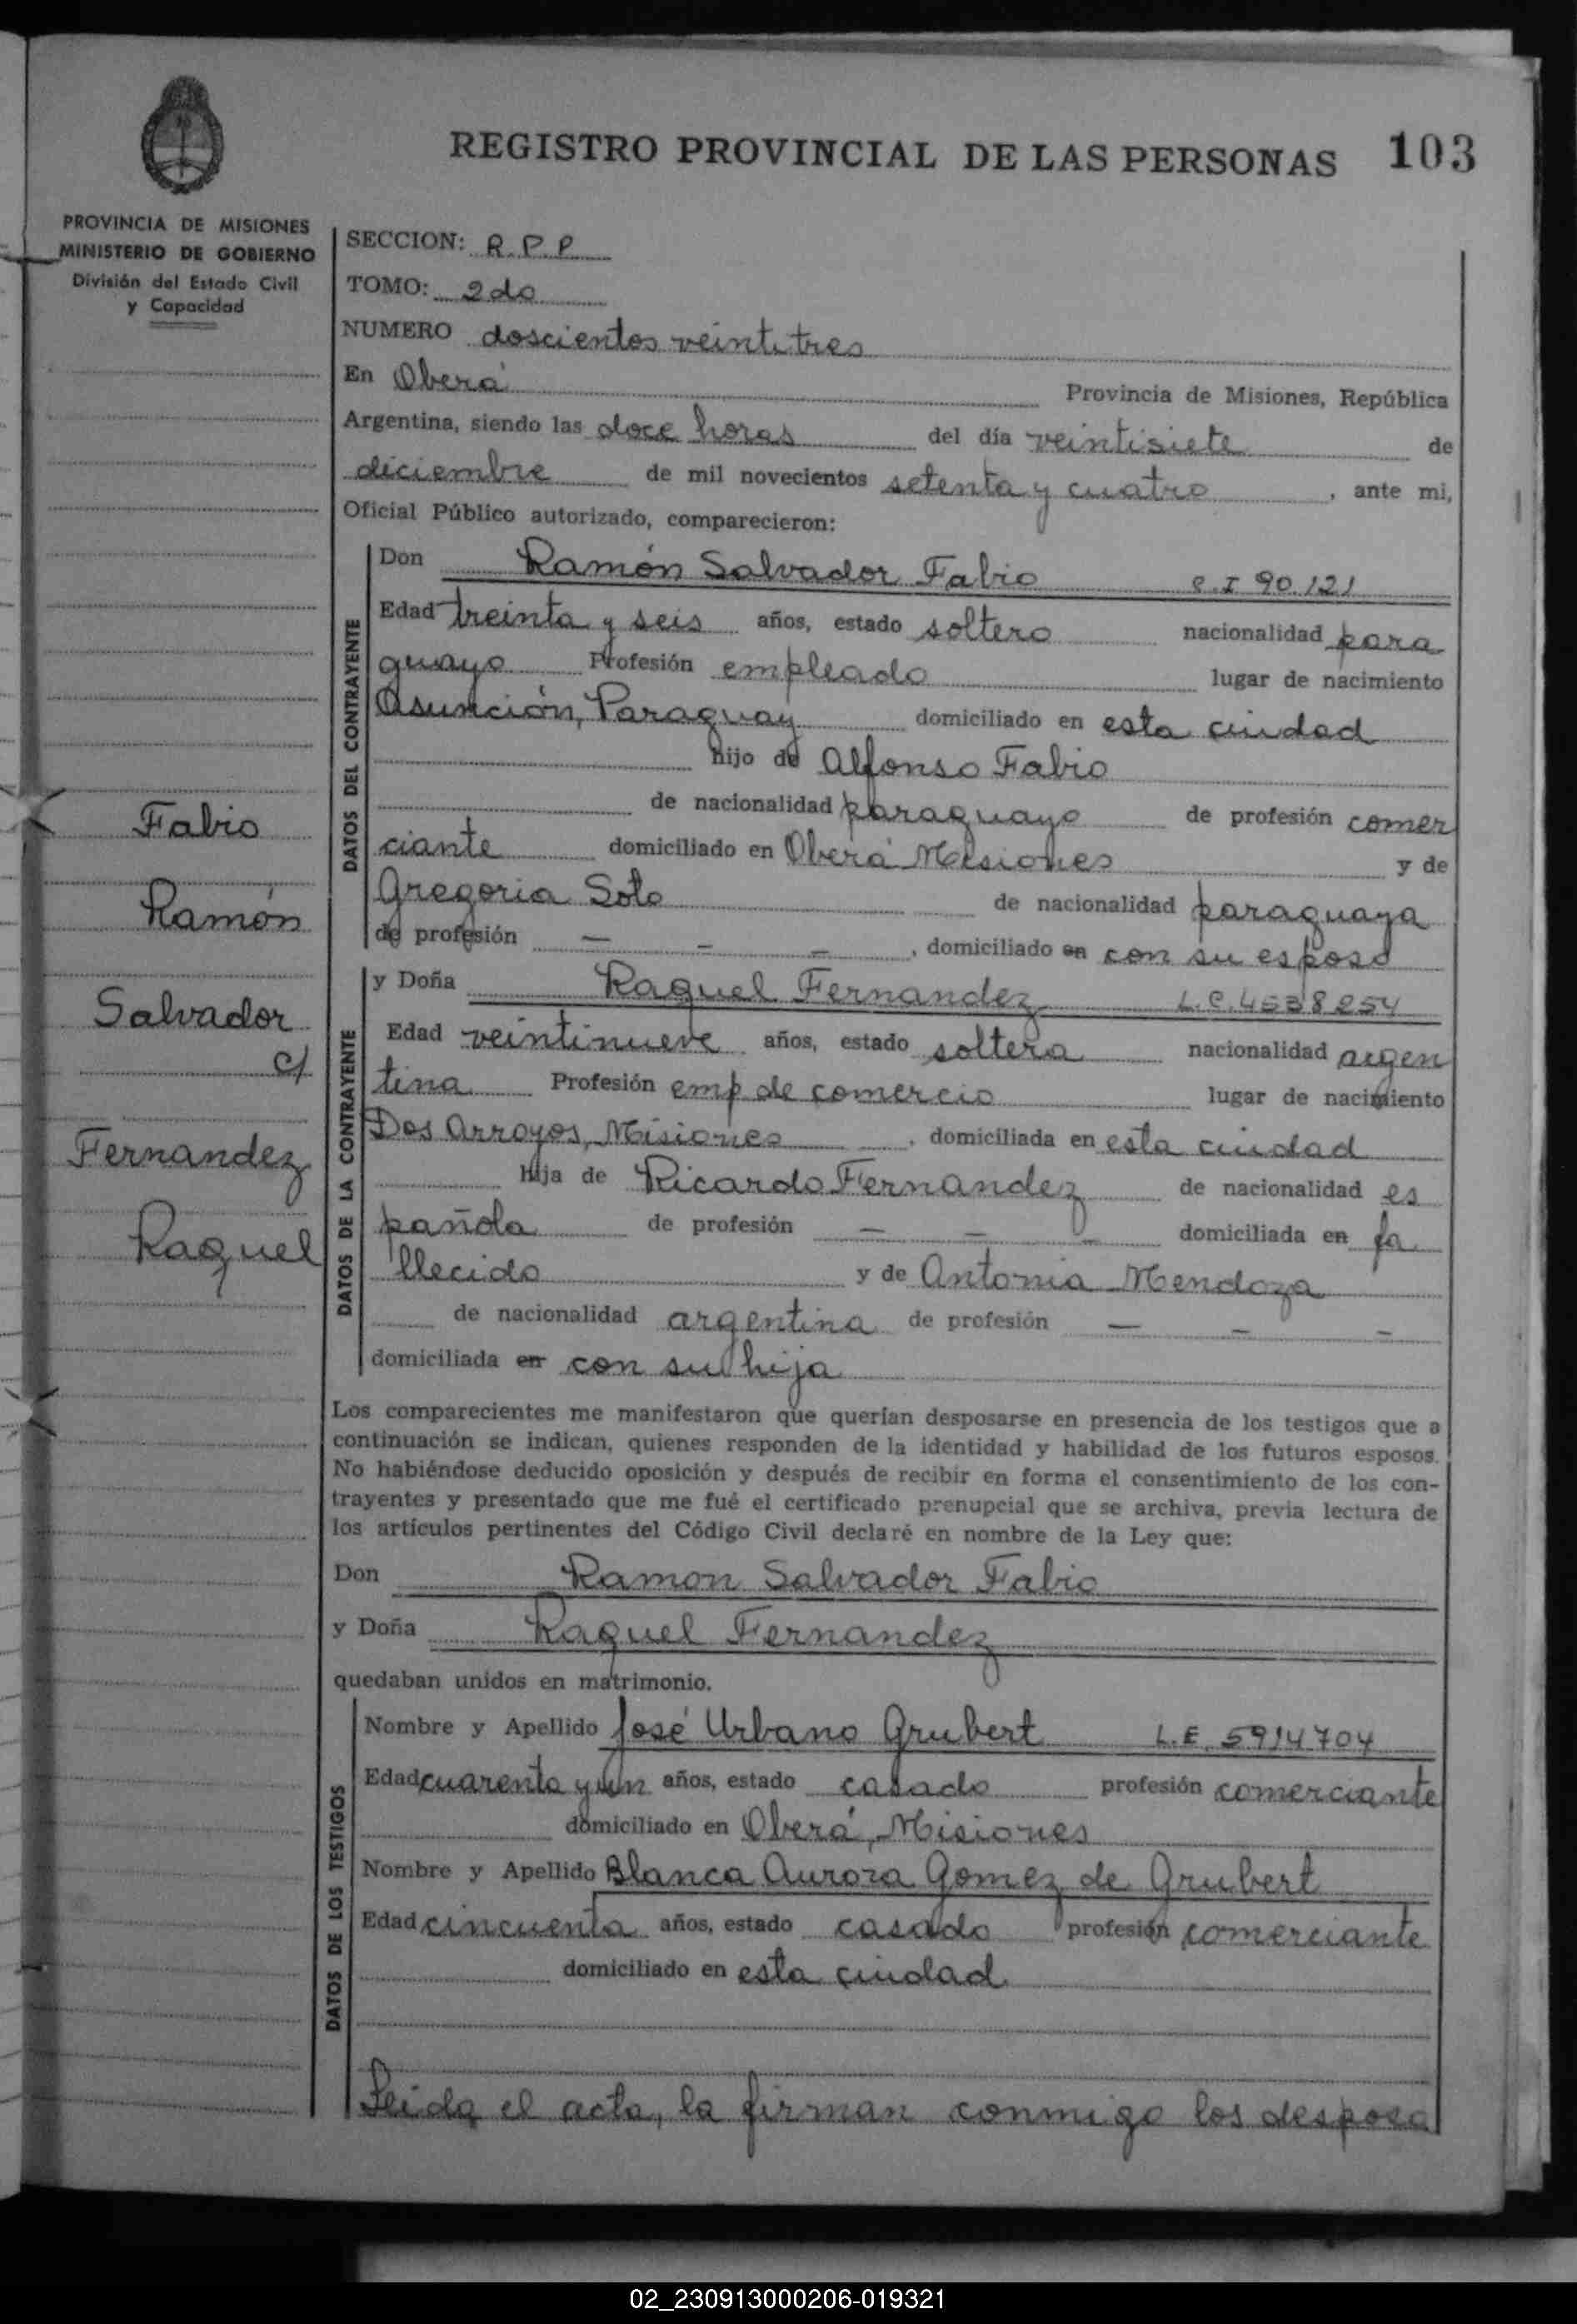 REGISTRO PROVINCIAL DE LAS PERSONAS 103
PROVINCIA DE MISIONES
MINISTERIO DE GOBIERNO
División del Estado Civil
y Capacidad
SECCION: R.P.P
TOMO: 2do
NUMERO doscientos veintitres
En Oberá Provincia de Misiones, República
Argentina, siendo las doce horas del día veintisiete de
diciembre de mil novecientos setenta y cuatro, ante mi,
Oficial Público autorizado, comparecieron:
DATOS DEL CONTRAYENTE
Don Ramón Salvador Fabio C.I 90.121
Edad treinta y seis años, estado soltero nacionalidad para
guayo Profesión empleado lugar de nacimiento
Asunción, Paraguay domiciliado en esta ciudad
hijo de Alfonso Fabio
de nacionalidad paraguayo de profesión comer
ciante domiciliado en Oberá Misiones y de
Gregoria Soto de nacionalidad paraguaya
de profesión — — —, domiciliado en con su esposo
Fabio
Ramón
Salvador
c/
Fernandez
Raquel
DATOS DE LA CONTRAYENTE
y Doña Raquel Fernandez L.C. 4538254
Edad veintinueve años, estado soltera nacionalidad argen
tina Profesión emp de comercio lugar de nacimiento
Dos Arroyos, Misiones, domiciliada en esta ciudad
hija de Ricardo Fernandez de nacionalidad es
pañola de profesión — — — domiciliada en fa
llecido y de Antonia Mendoza
de nacionalidad argentina de profesión — — —
domiciliada en con su hija
Los comparecientes me manifestaron que querían desposarse en presencia de los testigos que a
continuación se indican, quienes responden de la identidad y habilidad de los futuros esposos.
No habiéndose deducido oposición y después de recibir en forma el consentimiento de los con-
trayentes y presentado que me fué el certificado prenupcial que se archiva, previa lectura de
los artículos pertinentes del Código Civil declaré en nombre de la Ley que:
Don Ramon Salvador Fabio
y Doña Raquel Fernandez
quedaban unidos en matrimonio.
DATOS DE LOS TESTIGOS
Nombre y Apellido José Urbano Grubert L.E. 5914704
Edad cuarenta y un años, estado casado profesión comerciante
domiciliado en Oberá, Misiones
Nombre y Apellido Blanca Aurora Gomez de Grubert
Edad cincuenta años, estado casado profesión comerciante
domiciliado en esta ciudad
Leida el acta, la firman conmigo los desposa
02_230913000206-019321